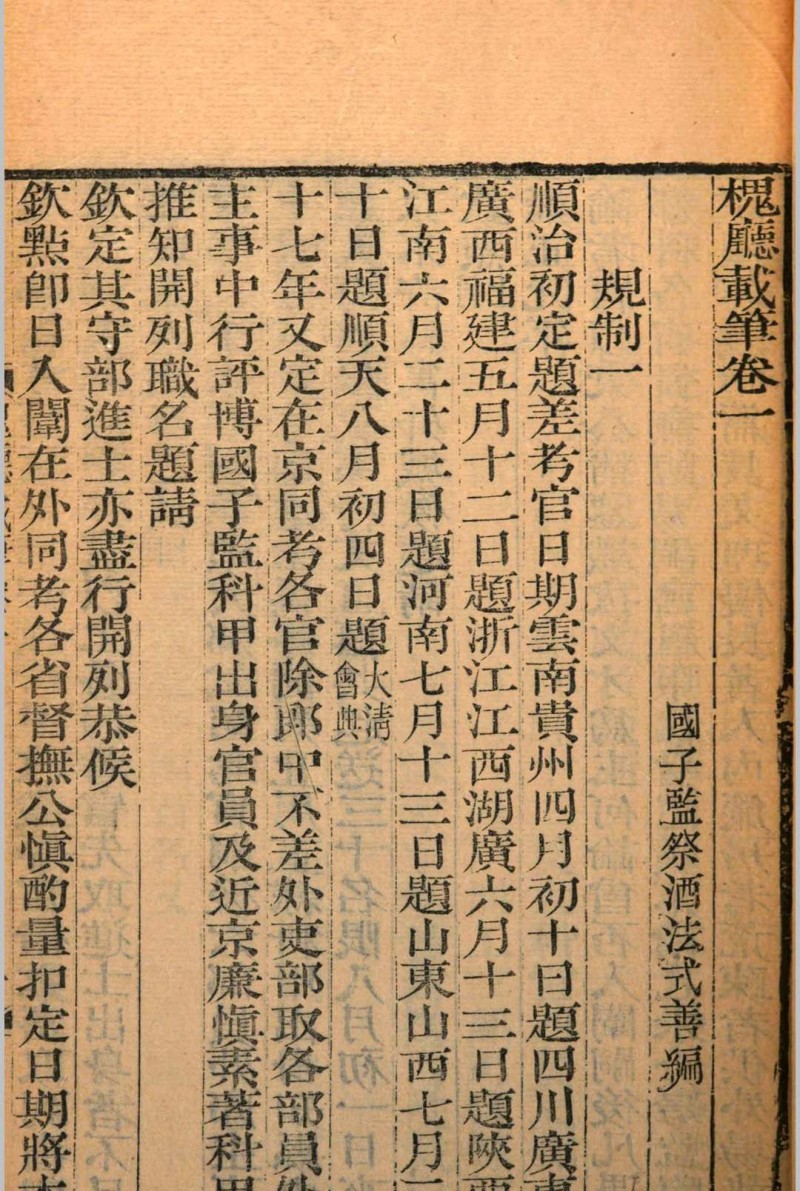 槐廳載筆卷一
國子監祭酒法式善編
規制一
順治初定題差考官日期雲南貴州四月初十日題四川廣東
廣西福建五月十二日題浙江江西湖廣六月十三日題陝西
江南六月二十三日題河南七月十三日題山東山西七月二
十日題順天八月初四日題大淸會典
十七年又定在京同考各官除郎中不差外吏部取各部員外
主事中行評博國子監科甲出身官員及近京廉愼素著科甲
推知開列職名題請
欽定其守部進士亦盡行開列恭候
欽點卽日入闈在外同考各省督撫公愼酌量扣定日期將本